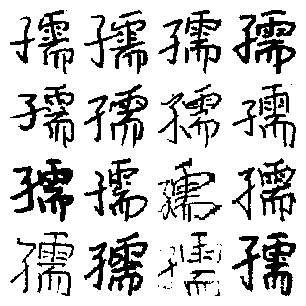 孺孺孺孺
孺孺孺孺
孺孺孺孺
孺孺孺孺